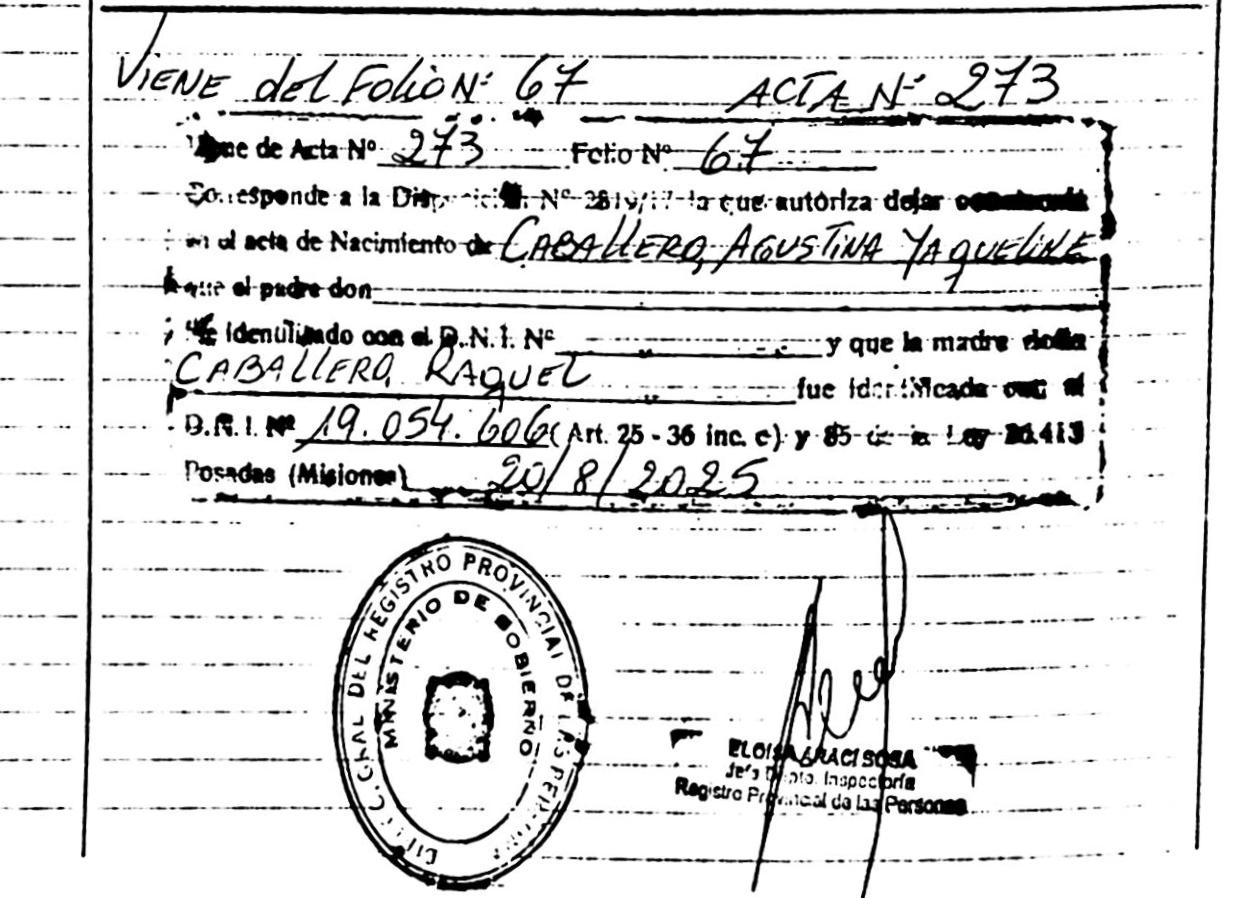 VIENE del FOLIO Nº 67 ACTA Nº 273
de Acta Nº 273 Folio Nº 67
Corresponde a la Disposición Nº la que autoriza dejar
en el acta de Nacimiento de CABALLERO, AGUSTINA YAQUELINE
que el padre don
identificado con el D.N.I. Nº y que la madre doña
CABALLERO, RAQUEL fue identificada con el
D.N.I. Nº 19.054.606 (Art. 25 - 36 inc. c) y 85 de la Ley 26.413
Posadas (Misiones) 20/8/2025
GRAL DEL REGISTRO PROVINCIAL DE LAS PERSONAS
MINISTERIO DE GOBIERNO
ELOISA ARACI SOSA
Jefa Dpto. Inspectoría
Registro Provincial de las Personas